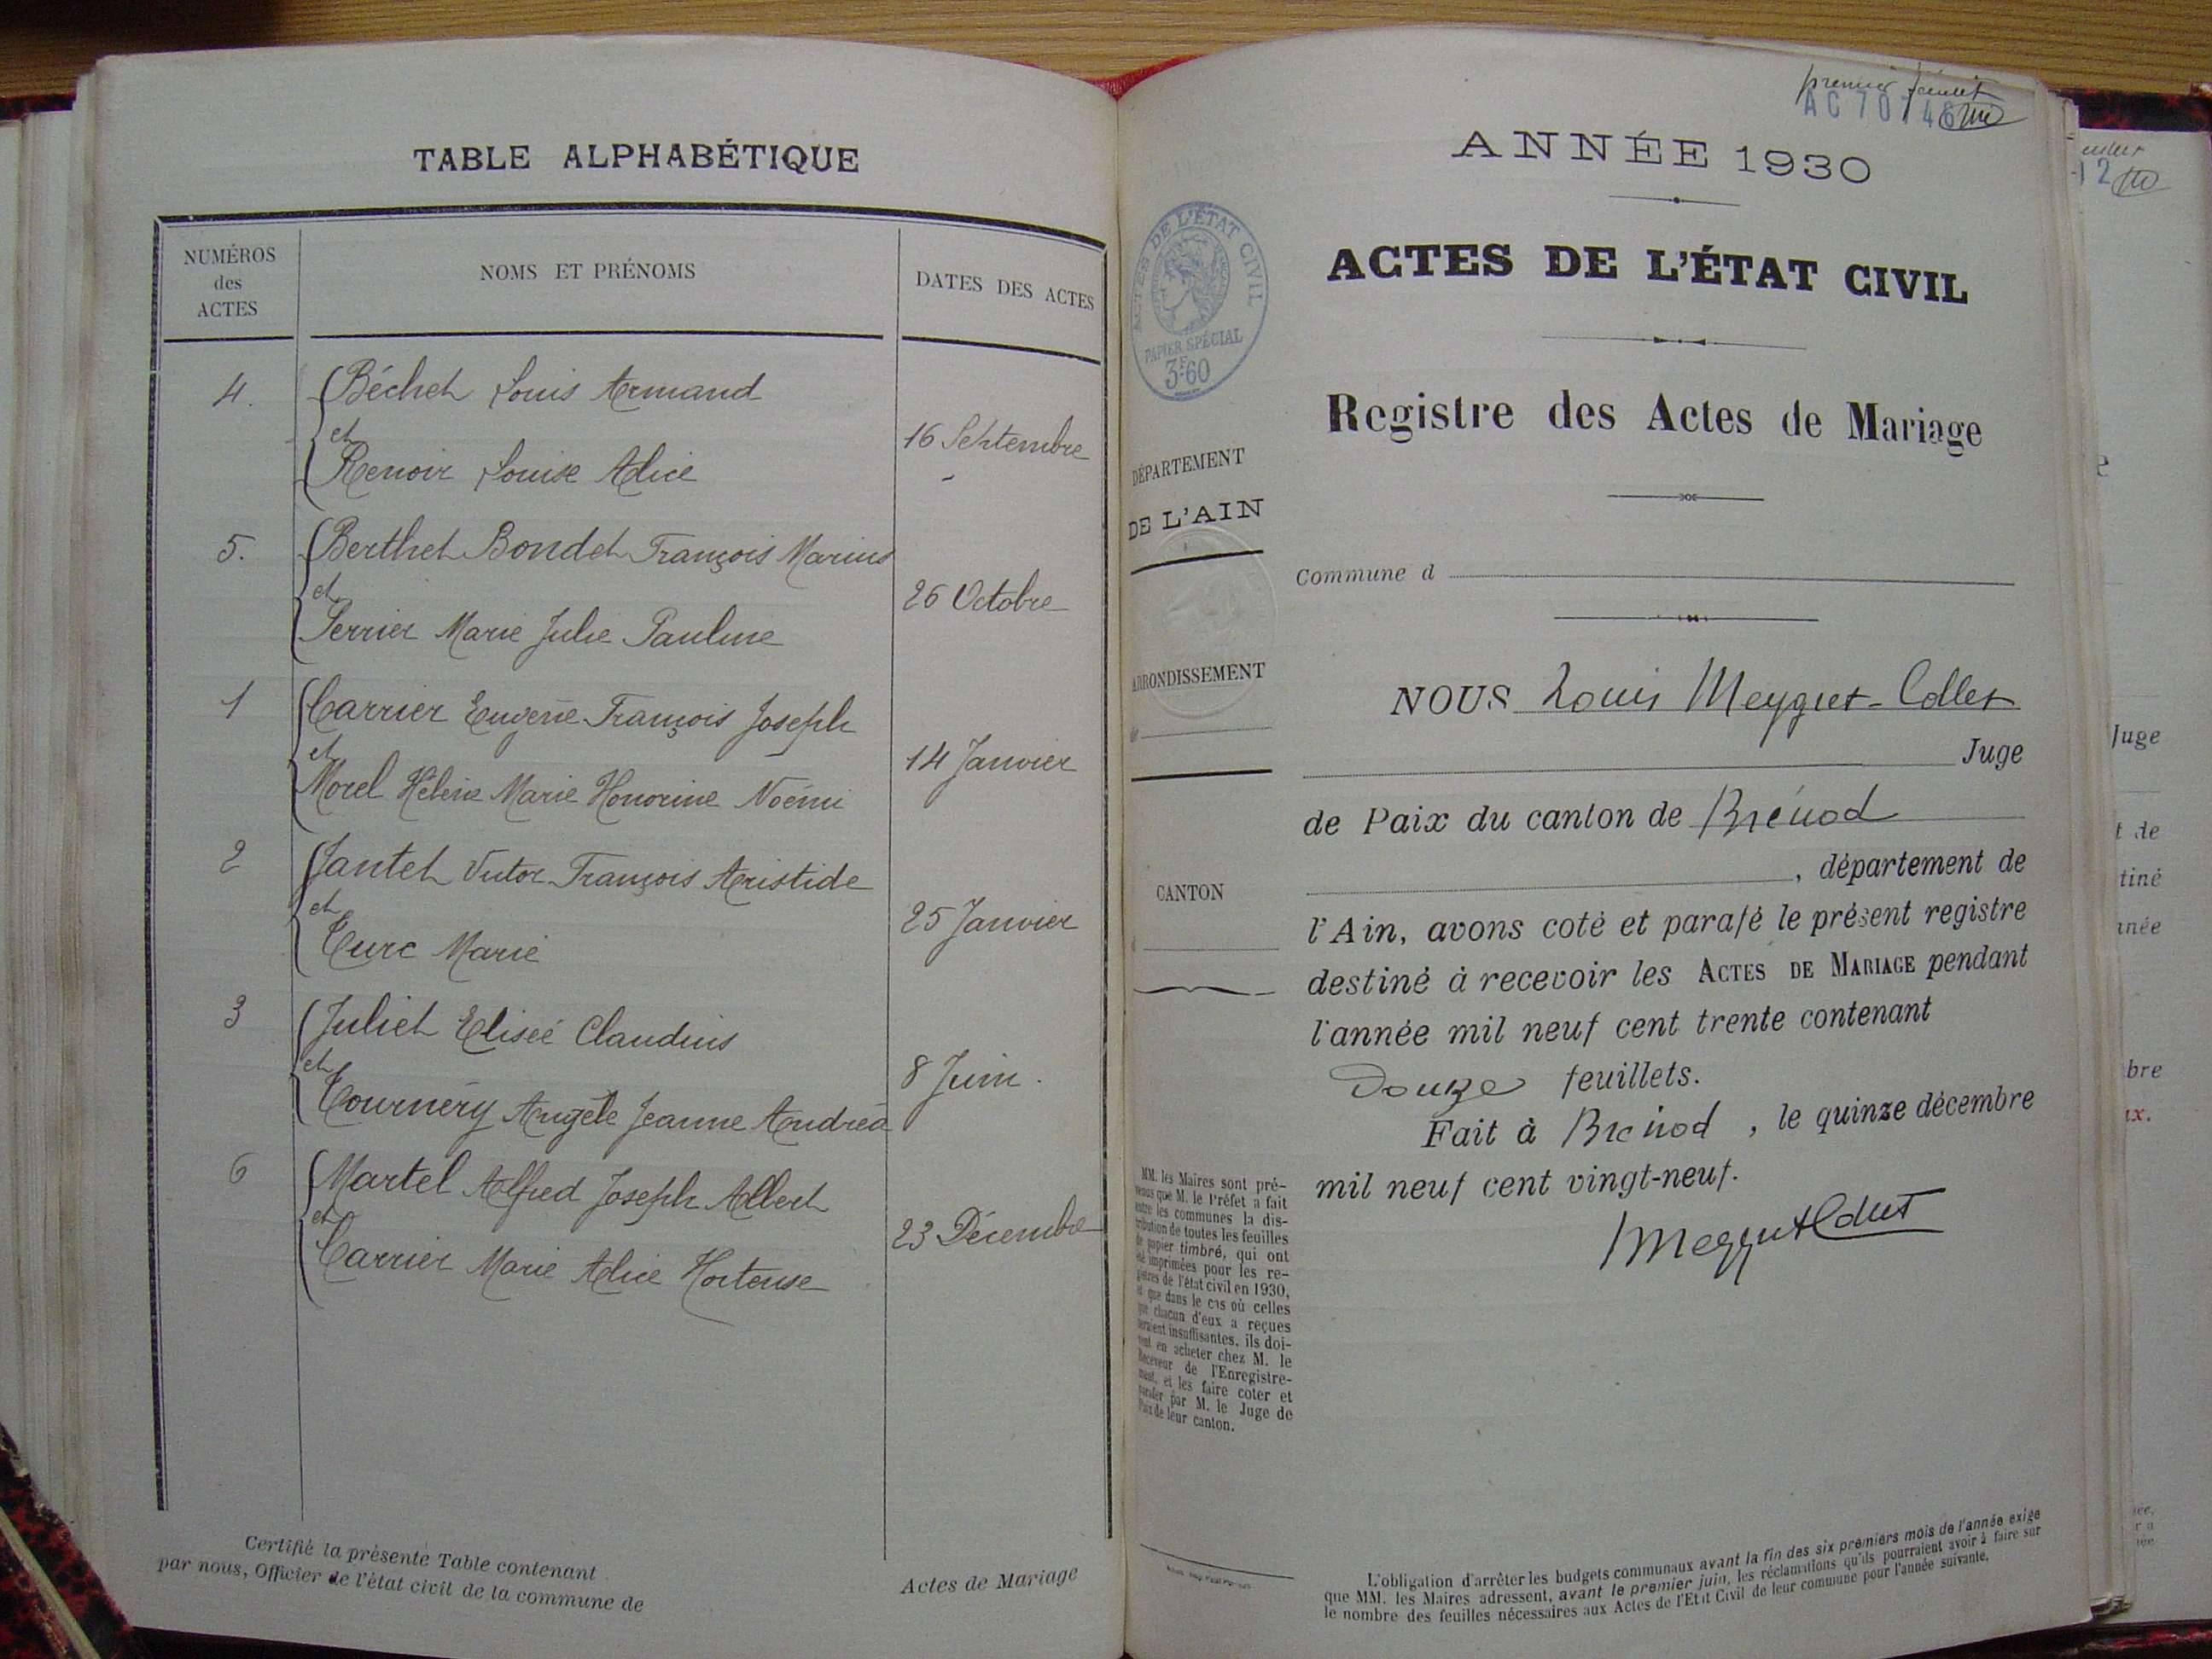 TABLE ALPHABÉTIQUE
NUMÉROS
des
ACTES
NOMS ET PRÉNOMS
DATES DES ACTES
4.
Béchet Louis Armand
et
Renoir Louise Alice
16 Septembre
5.
Berthet Bondet François Marius
et
Perrier Marie Julie Pauline
26 Octobre
1
Carrier Eugène François Joseph
et
Morel Hélène Marie Honorine Noémi
14 Janvier
2
Jantet Victor François Aristide
et
Turc Marie
25 Janvier
3
Juliet Elisée Claudius
et
Tournéry Angèle Jeanne Andréa
8 Juin.
6
Martel Alfred Joseph Albert
et
Carrier Marie Alice Hortense
23 Décembre
Certifié la présente Table contenant
Actes de Mariage
par nous, Officier de l'état civil de la commune de
premier feuillet
ANNÉE 1930
ACTES DE L'ÉTAT CIVIL
PAPIER SPÉCIAL
3F60
ACTES DE L'ÉTAT CIVIL
Registre des Actes de Mariage
DÉPARTEMENT
DE L'AIN
Commune d
ARRONDISSEMENT
CANTON
NOUS Louis Meygret-Collet
Juge
de Paix du canton de Brénod
, département de
l'Ain, avons coté et parafé le présent registre
destiné à recevoir les ACTES DE MARIAGE pendant
l'année mil neuf cent trente contenant
Douze feuillets.
Fait à Brénod, le quinze décembre
mil neuf cent vingt-neuf.
MM. les Maires sont pré-
venus que M. le Préfet a fait
entre les communes la dis-
tribution de toutes les feuilles
de papier timbré, qui ont
été imprimées pour les re-
gistres de l'état civil en 1930,
et que dans le cas où celles
que chacun d'eux a reçues
seraient insuffisantes, ils doi-
vent en acheter chez M. le
Receveur de l'Enregistre-
ment, et les faire coter et
parafer par M. le Juge de
Paix de leur canton.
L'obligation d'arrêter les budgets communaux avant la fin des six premiers mois de l'année exige
que MM. les Maires adressent, avant le premier juin, les réclamations qu'ils pourraient avoir à faire sur
le nombre des feuilles nécessaires aux Actes de l'Etat Civil de leur commune pour l'année suivante.
12
Juge
t de
tiné
nnée
bre